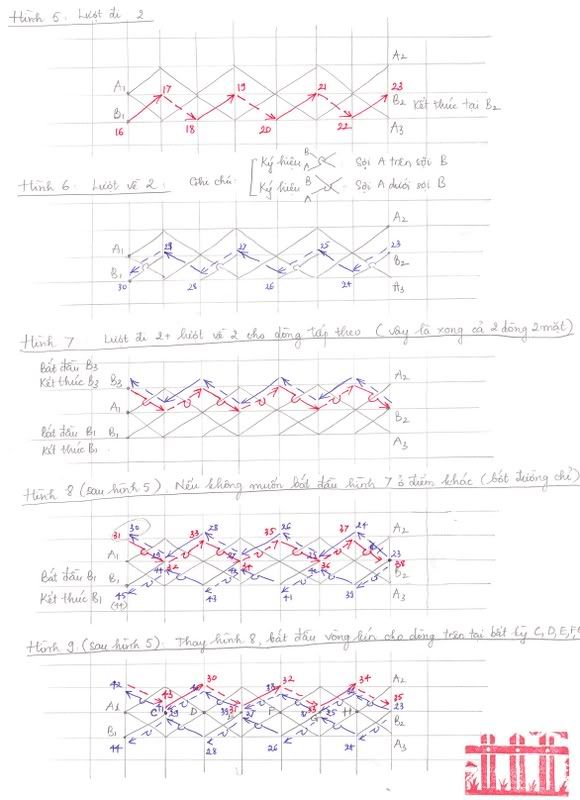 Hình 5. Lượt đi 2
A2
17 19 21 23
A1
B1 B2 Kết thúc tại B2
16 18 20 22 A3
Ghi chú: Ký hiệu B A Sợi A trên sợi B
Ký hiệu B A Sợi A dưới sợi B
Hình 6. Lượt về 2.
A2
A1 27 25 23
B1 B2
30 28 26 24 A3
Hình 7 Lượt đi 2 + lượt về 2 cho dòng tiếp theo (vậy là xong cả 2 dòng 2 mặt)
Bắt đầu B3
Kết thúc B3 B3 A2
A1 B2
Bắt đầu B1 B1
Kết thúc B1 A3
Hình 8 (sau hình 5). Nếu không muốn bắt đầu hình 7 ở điểm khác (bớt đường chỉ)
30 28 26 24
31 33 35 37 A2
A1 32 36 23
Bắt đầu B1 B1 B2
Kết thúc B1 45 43 41 39 A3
(44)
Hình 9. (sau hình 5). Thay hình 8, bắt đầu vòng kín cho dòng trên tại bất kỳ C, D, E, F, G
42 30 32 34 A2
43 35
A1 C 29 D F G H 23
B1 B2
44 28 26 24 A3